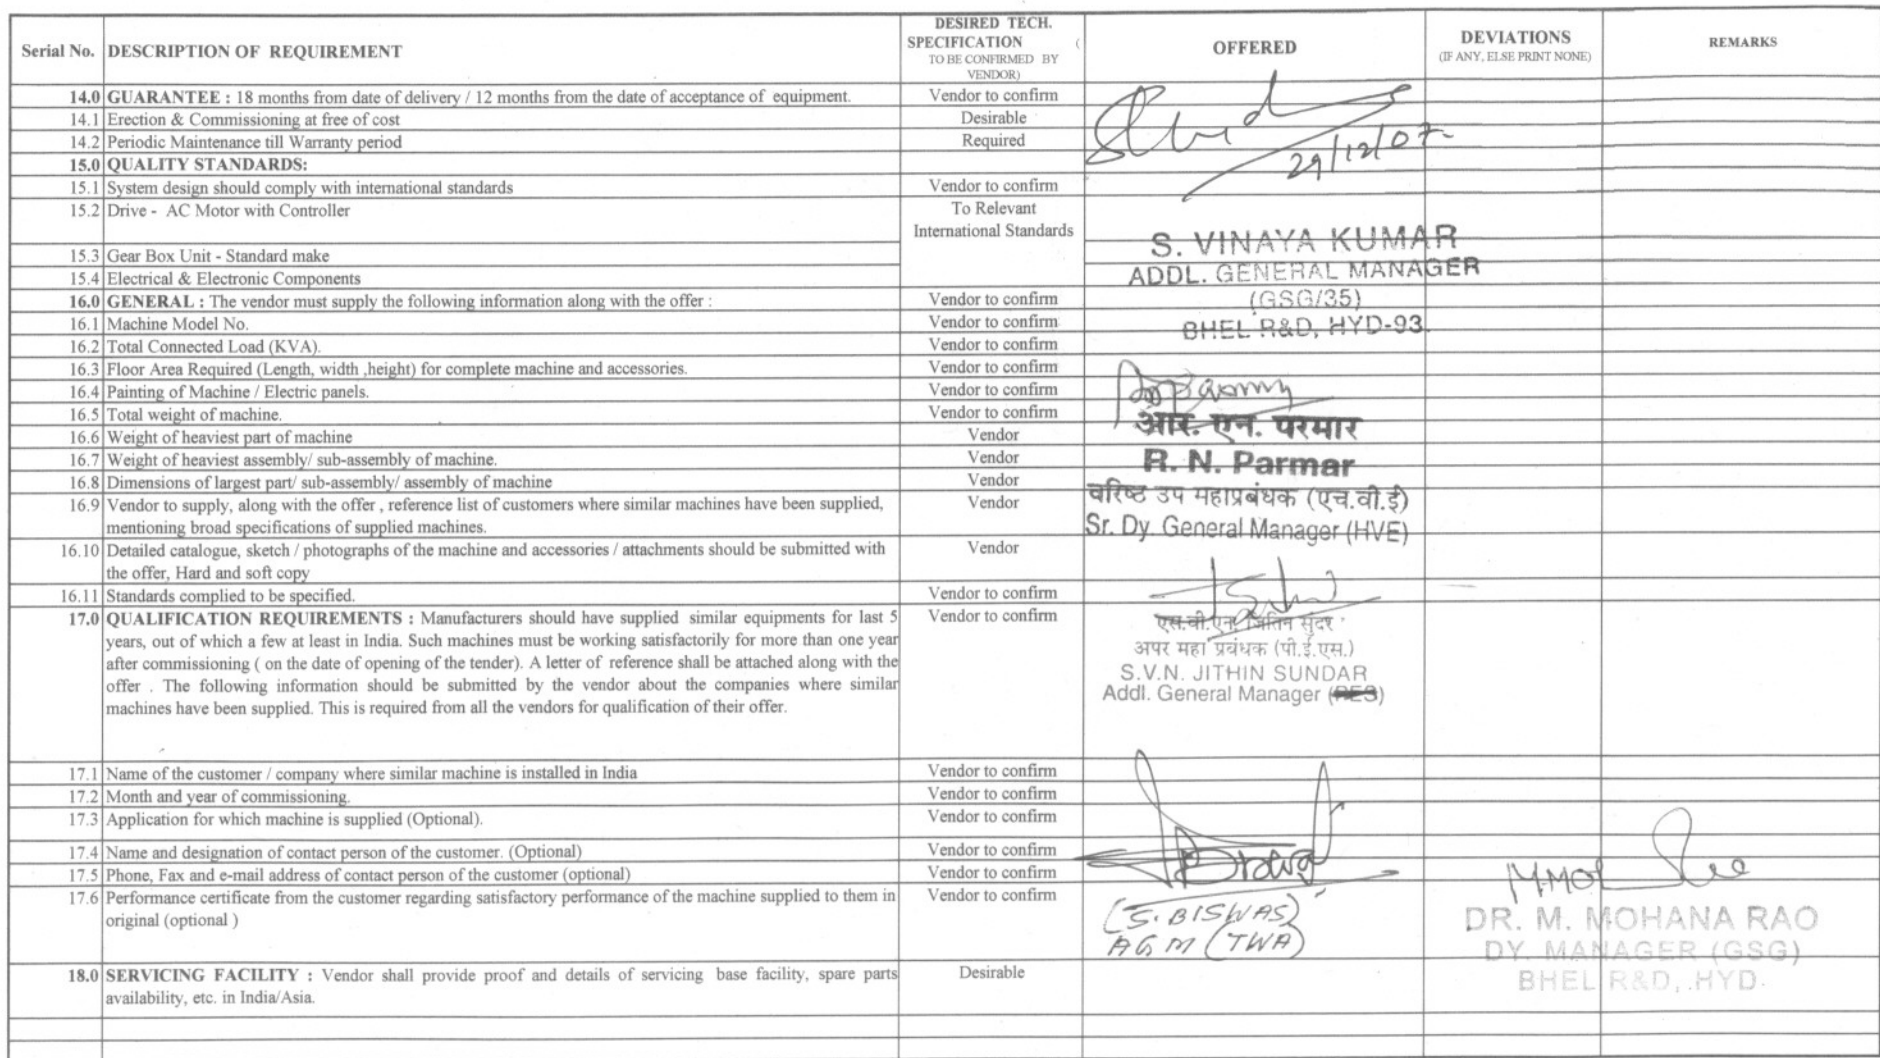 Serial No. DESCRIPTION OF REQUIREMENT DESIRED TECH. SPECIFICATION ( TO BE CONFIRMED BY VENDOR) OFFERED DEVIATIONS (IF ANY, ELSE PRINT NONE) REMARKS
14.0 GUARANTEE : 18 months from date of delivery / 12 months from the date of acceptance of equipment. Vendor to confirm
14.1 Erection & Commissioning at free of cost Desirable
14.2 Periodic Maintenance till Warranty period Required
29/12/07
15.0 QUALITY STANDARDS:
15.1 System design should comply with international standards Vendor to confirm
15.2 Drive - AC Motor with Controller To Relevant
International Standards
S. VINAYA KUMAR
15.3 Gear Box Unit - Standard make
ADDL. GENERAL MANAGER
15.4 Electrical & Electronic Components
16.0 GENERAL : The vendor must supply the following information along with the offer : Vendor to confirm
(GSG/35)
16.1 Machine Model No. Vendor to confirm
BHEL R&D, HYD-93
16.2 Total Connected Load (KVA). Vendor to confirm
16.3 Floor Area Required (Length, width ,height) for complete machine and accessories. Vendor to confirm
16.4 Painting of Machine / Electric panels. Vendor to confirm
16.5 Total weight of machine. Vendor to confirm
आर. एन. परमार
16.6 Weight of heaviest part of machine Vendor
16.7 Weight of heaviest assembly/ sub-assembly of machine. Vendor
R. N. Parmar
16.8 Dimensions of largest part/ sub-assembly/ assembly of machine Vendor
वरिष्ठ उप महाप्रबंधक (एच.वी.ई)
16.9 Vendor to supply, along with the offer , reference list of customers where similar machines have been supplied, Vendor
mentioning broad specifications of supplied machines.
Sr. Dy. General Manager (HVE)
16.10 Detailed catalogue, sketch / photographs of the machine and accessories / attachments should be submitted with Vendor
the offer, Hard and soft copy
16.11 Standards complied to be specified. Vendor to confirm
17.0 QUALIFICATION REQUIREMENTS : Manufacturers should have supplied similar equipments for last 5 Vendor to confirm
years, out of which a few at least in India. Such machines must be working satisfactorily for more than one year
after commissioning ( on the date of opening of the tender). A letter of reference shall be attached along with the
offer . The following information should be submitted by the vendor about the companies where similar
machines have been supplied. This is required from all the vendors for qualification of their offer.
एस.वी.एन. जितिन सुंदर
अपर महा प्रबंधक (पी.ई.एस.)
S.V.N. JITHIN SUNDAR
Addl. General Manager (PES)
17.1 Name of the customer / company where similar machine is installed in India Vendor to confirm
17.2 Month and year of commissioning. Vendor to confirm
17.3 Application for which machine is supplied (Optional). Vendor to confirm
17.4 Name and designation of contact person of the customer. (Optional) Vendor to confirm
17.5 Phone, Fax and e-mail address of contact person of the customer (optional) Vendor to confirm
17.6 Performance certificate from the customer regarding satisfactory performance of the machine supplied to them in Vendor to confirm
original (optional )
(S. BISWAS)
AGM (TWA)
DR. M. MOHANA RAO
DY. MANAGER (GSG)
BHEL R&D, HYD.
18.0 SERVICING FACILITY : Vendor shall provide proof and details of servicing base facility, spare parts Desirable
availability, etc. in India/Asia.